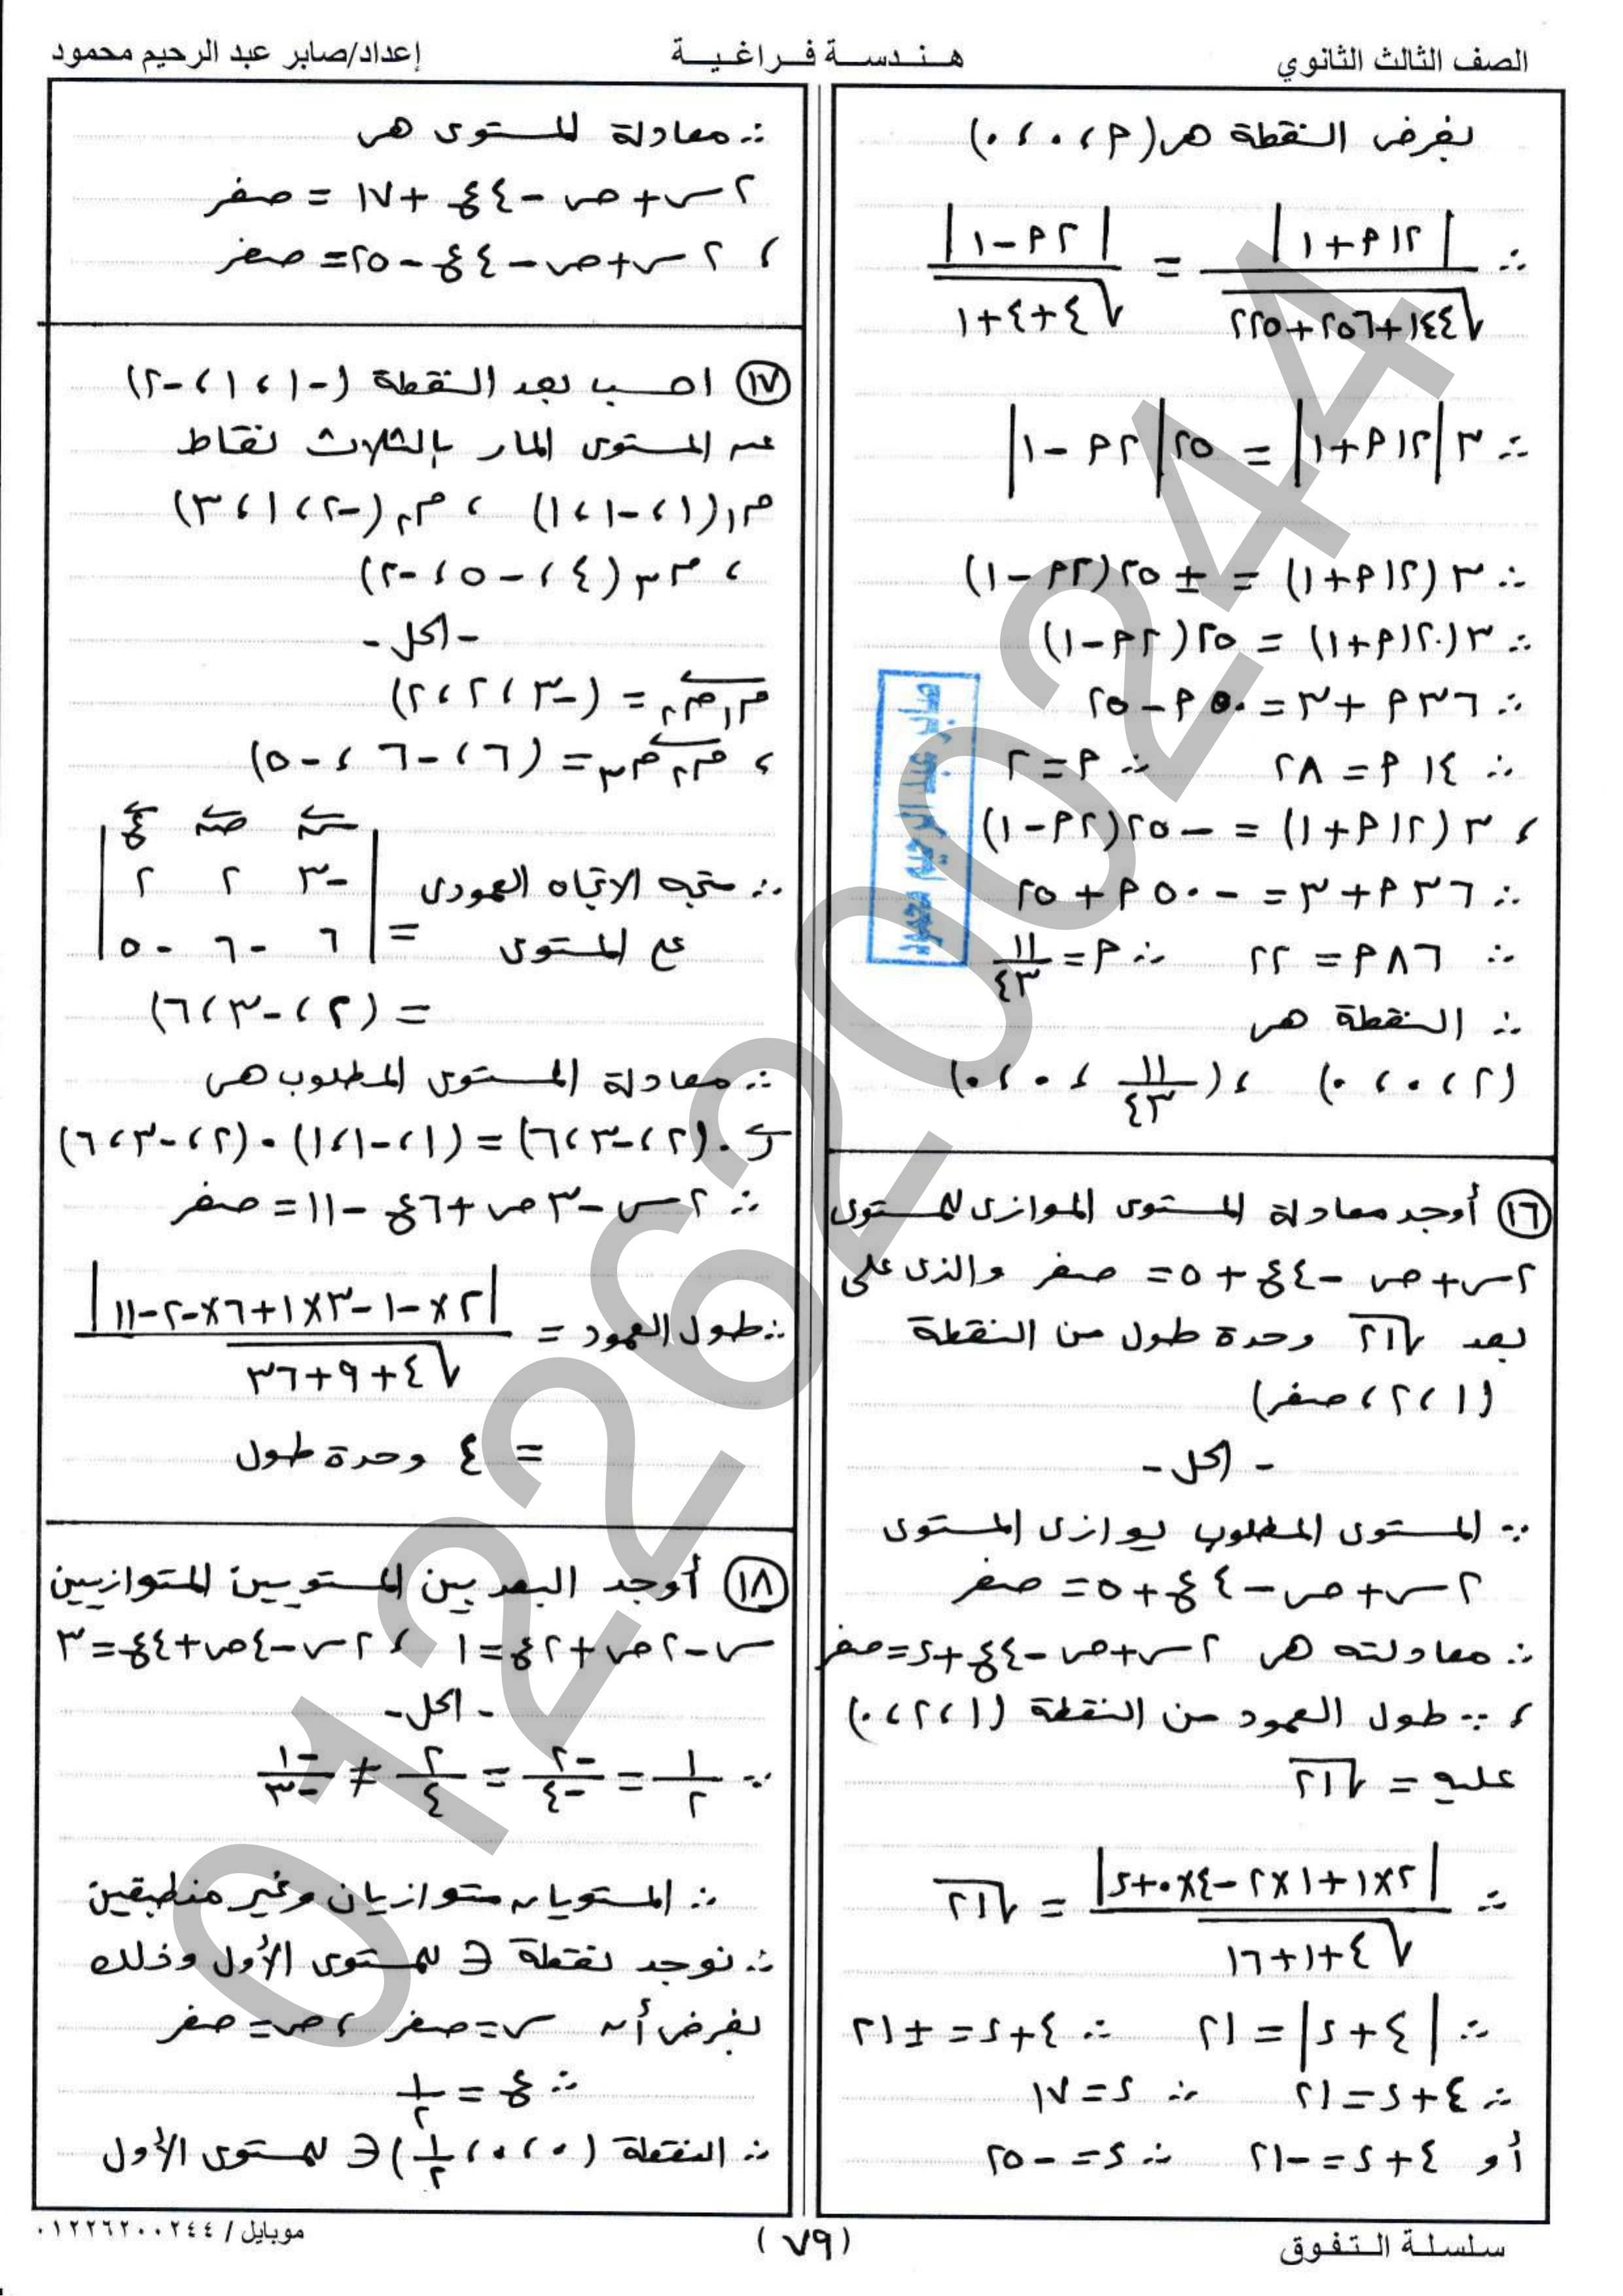 الصف الثالث الثانوي
هـنـدسـة فـراغـيـة
إعداد/صابر عبد الرحيم محمود
بفرض النقطة هى (٢ ، ٠ ، ٠)
∴ |١٢ ٢ + ١| / √(١٤٤+٢٥٦+٢٢٥) = |٢ ٢ - ١| / √(٤+٤+١)
∴ ٣ |١٢ ٢ + ١| = ٢٥ |٢ ٢ - ١|
∴ ٣ (١٢ ٢ + ١) = ± ٢٥ (٢ ٢ - ١)
∴ ٣ (١٢ ٢ + ١) = ٢٥ (٢ ٢ - ١)
∴ ٣٦ ٢ + ٣ = ٥٠ ٢ - ٢٥
∴ ١٤ ٢ = ٢٨ ∴ ٢ = ٢
، ٣ (١٢ ٢ + ١) = - ٢٥ (٢ ٢ - ١)
∴ ٣٦ ٢ + ٣ = - ٥٠ ٢ + ٢٥
∴ ٨٦ ٢ = ٢٢ ∴ ٢ = ١١/٤٣
∴ النقطة هى
(٢ ، ٠ ، ٠) ، (١١/٤٣ ، ٠ ، ٠)
(١٦) أوجد معادلة المستوى الموازى للمستوى
٢س + ص - ٤ع + ٥ = صفر والذى على
بعد √٢١ وحدة طول من النقطة
(١ ، ٢ ، صفر)
- الحل -
∵ المستوى المطلوب يوازى المستوى
٢س + ص - ٤ع + ٥ = صفر
∴ معادلته هى ٢س + ص - ٤ع + د = صفر
، ∵ طول العمود من النقطة (١ ، ٢ ، ٠)
عليه = √٢١
∴ |٢×١ + ١×٢ - ٤×٠ + د| / √(٤+١+١٦) = √٢١
∴ |٤ + د| = ٢١ ∴ ٤ + د = ± ٢١
∴ ٤ + د = ٢١ ∴ د = ١٧
أو ٤ + د = -٢١ ∴ د = -٢٥
∴ معادلة المستوى هى
٢س + ص - ٤ع + ١٧ = صفر
، ٢س + ص - ٤ع - ٢٥ = صفر
(١٧) احسب بعد النقطة (-١ ، ١ ، -٢)
عن المستوى المار بالثلاث نقاط
م١ (١ ، -١ ، ١) ، م٢ (-٢ ، ١ ، ٣)
، م٣ (٤ ، -٥ ، -٢)
- الحل -
م١م٢ = (-٣ ، ٢ ، ٢)
، م٢م٣ = (٦ ، -٦ ، -٥)
س ص ع
∴ متجه الاتجاه العمودى | -٣ ٢ ٢ |
على المستوى = | ٦ -٦ -٥ |
= (٢ ، -٣ ، ٦)
∴ معادلة المستوى المطلوب هى
ر . (٢ ، -٣ ، ٦) = (١ ، -١ ، ١) . (٢ ، -٣ ، ٦)
∴ ٢س - ٣ص + ٦ع - ١١ = صفر
∴ طول العمود = |٢×-١ -٣×١ +٦×-٢ -١١| / √(٤+٩+٣٦)
= ٤ وحدة طول
(١٨) أوجد البعد بين المستويين المتوازيين
س - ٢ص + ٢ع = ١ ، ٢س - ٤ص + ٤ع = ٣
- الحل -
∵ ١/٢ = -٢/-٤ = ٢/٤ ≠ -١/-٣
∴ المستويان متوازيان وغير منطبقين
∴ نوجد نقطة ∈ للمستوى الأول وذلك
بفرض أن س = صفر ، ص = صفر
∴ ع = ١/٢
∴ النقطة (٠ ، ٠ ، ١/٢) ∈ للمستوى الأول
سلسلة الـتـفـوق
(٧٩)
موبايل / ٠١٢٢٦٢٠٠٢٤٤
01226200244